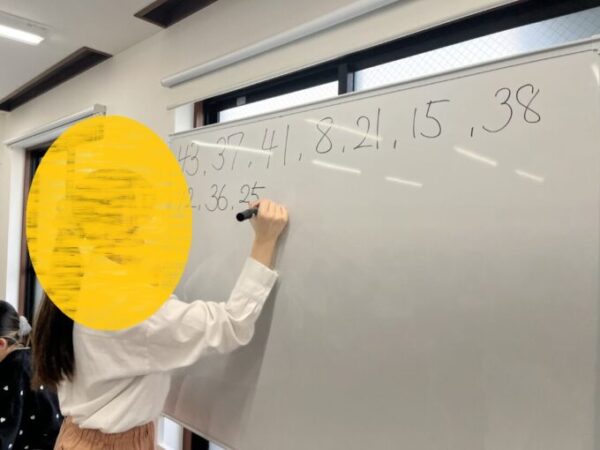 43, 37, 41, 8, 21, 15, 38
12, 36, 25